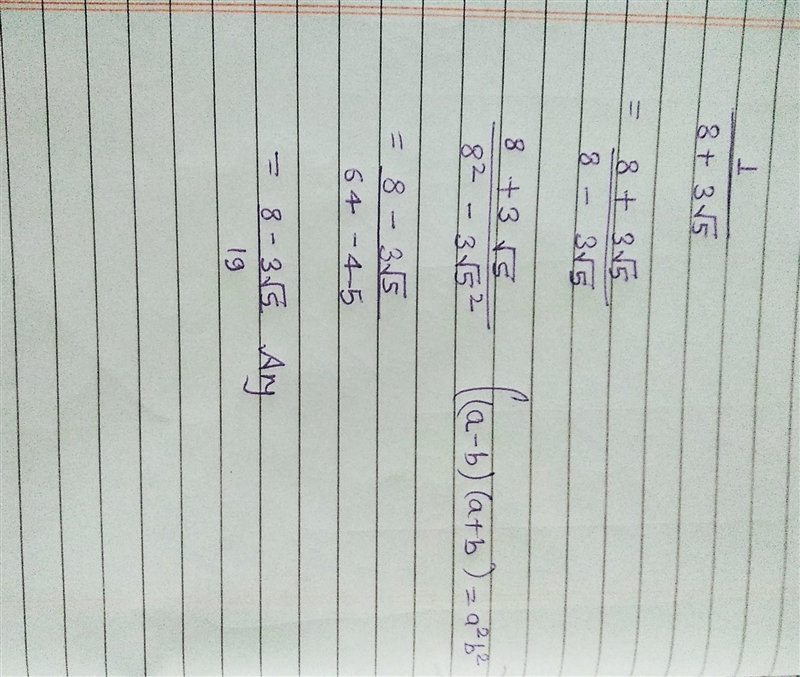 1
8 + 3√5
= 8 + 3√5
8 - 3√5
8 + 3√5
8² - 3√5² ((a-b)(a+b) = a²b²)
= 8 - 3√5
64 - 45
= 8 - 3√5 Any
19